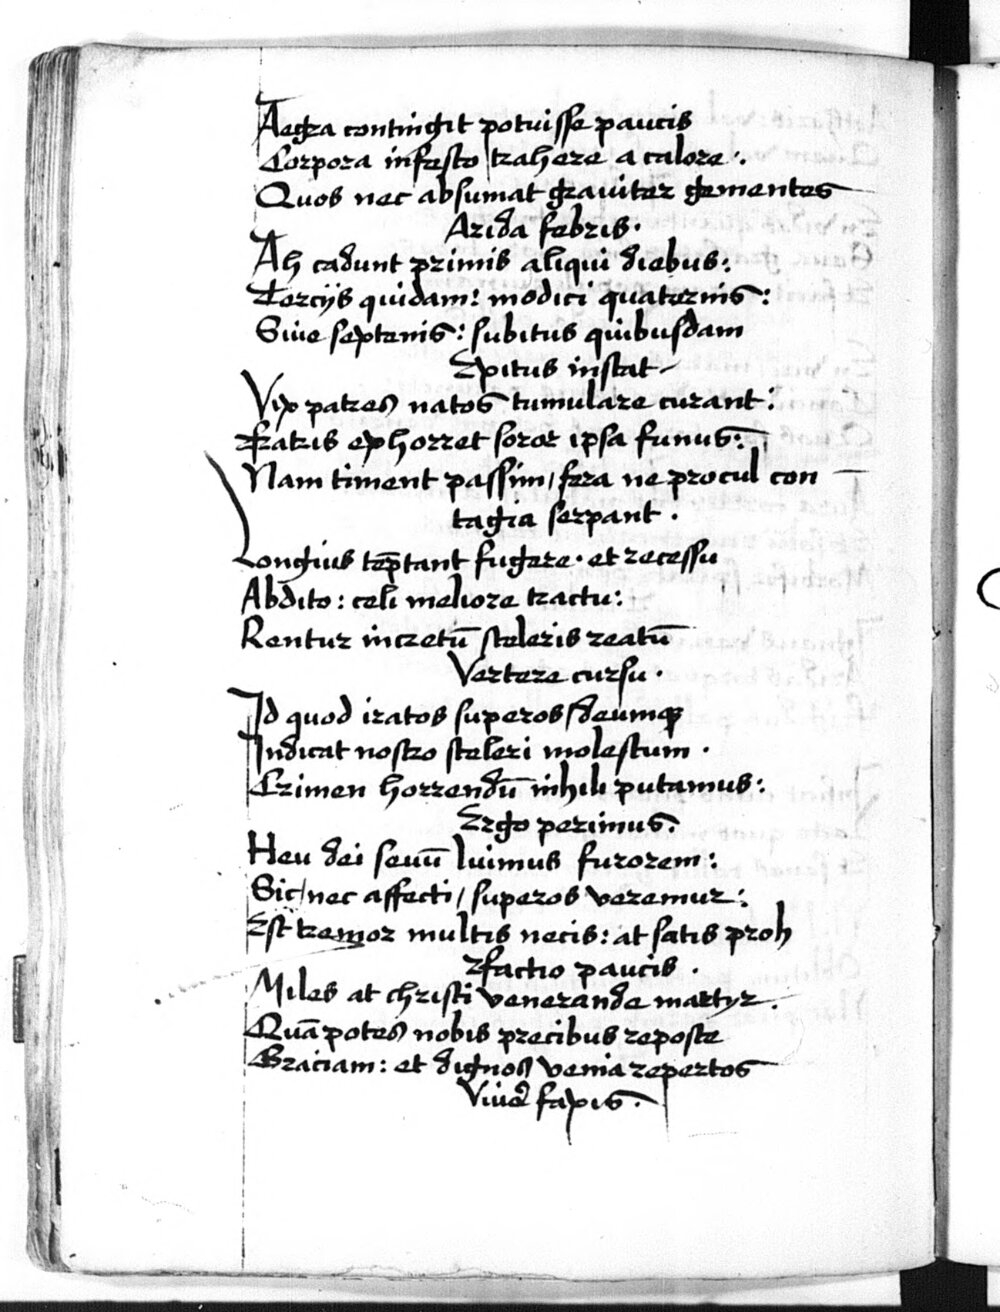 Aegra contingit potuisse paucis
Corpora infesto trahere a calore:
Quos nec absumat grauiter gementes
Arida febris.
Ah cadunt primis aliqui diebus:
Terciis quidam: modici quaternis:
Siue septenis: subitus quibusdam
Exitus instat
Vix patres natos tumulare curant:
Fratris exhorret soror ipsa funus:
Nam timent passim / fera ne procul con
tagia serpant.
Longius tēptant fugere. et recessu
Abdito: celi meliore tractu:
Rentur incretū sceleris reatū
Vertere cursu.
Id quod iratos superos / deumq
Indicat nostro sceleri molestum.
Crimen horrendū nihili putamus:
Ergo perimus.
Heu dei seuū luimus furorem:
Sic / nec affecti / superos veremur:
Est tremor multis necis: at satis proh
factio paucis.
Miles at christi venerande martyr.
Quā potes nobis precibus reposce
Graciam: et dignos venia repertos